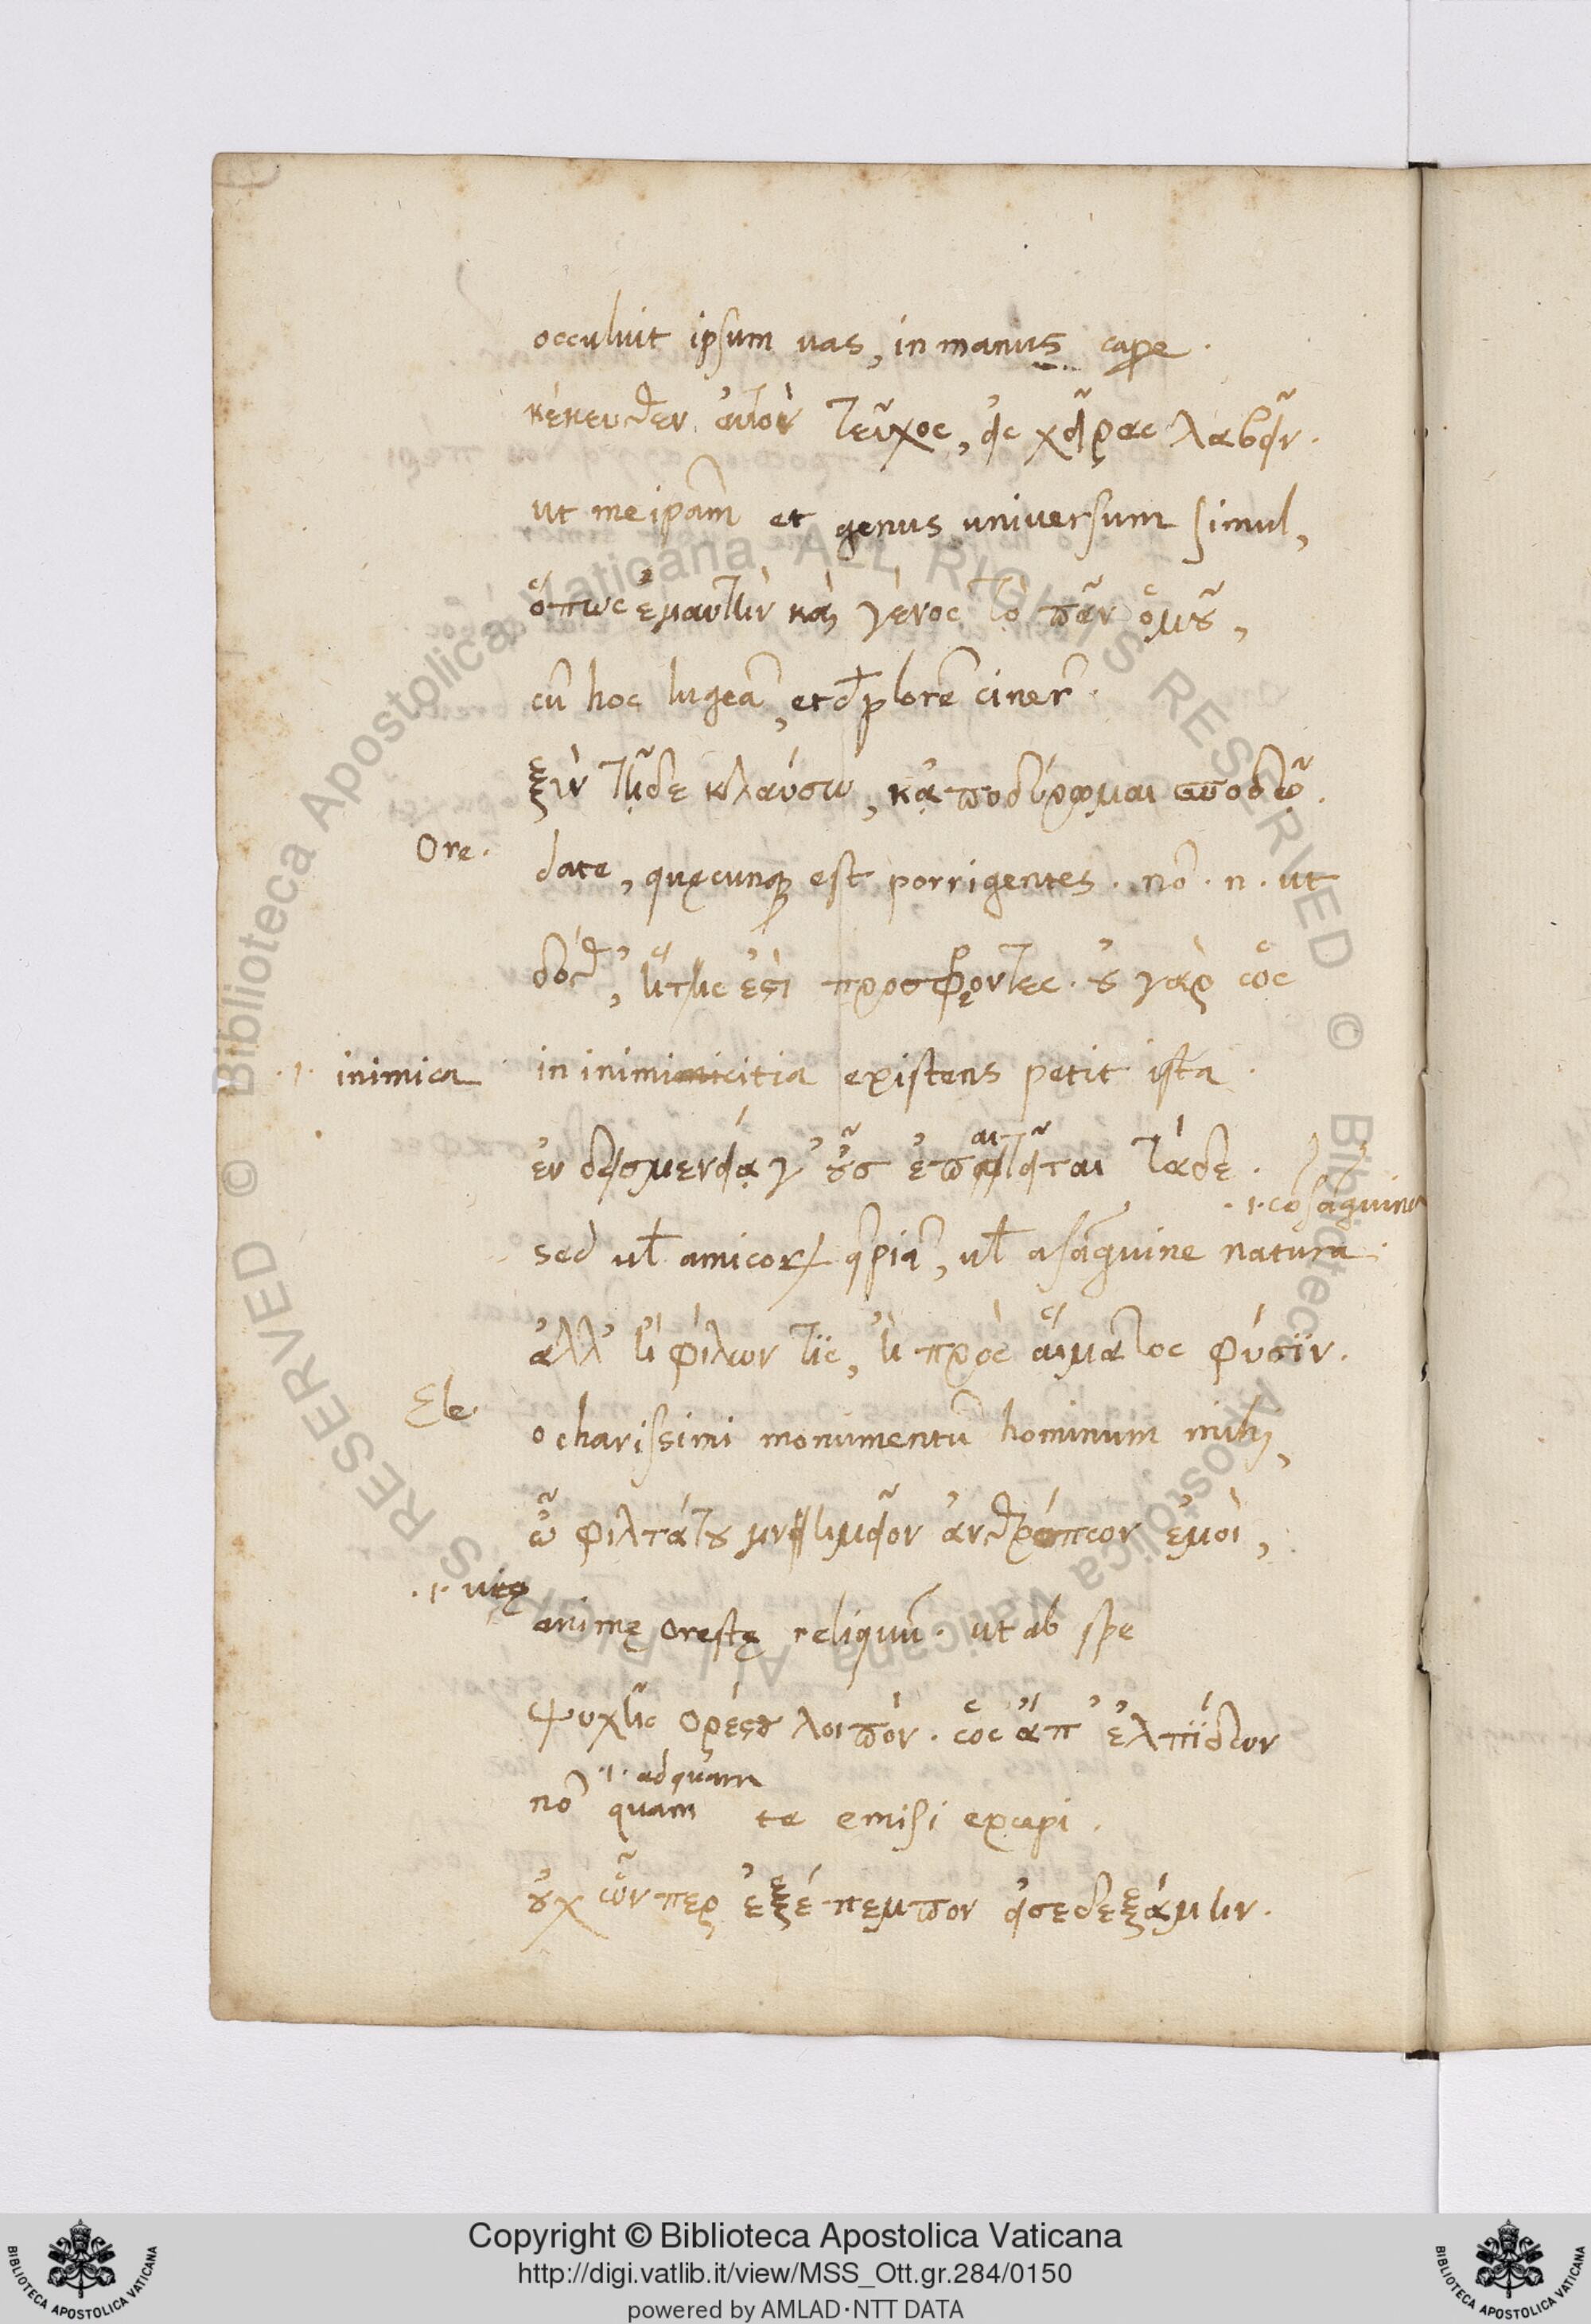 occuluit ipsum uas, in manus cape.
κέκευθεν αὐτὸν τεῦχος, εἰς χεῖρας λαβεῖν.
ut meipam̃ et genus uniuersum simul,
ὅπως ἐμαυτὴν καὶ γένος τὸ πᾶν ὁμοῦ,
cũ hoc lugeã, et deplorẽ cinerẽ.
ξὺν τῇδε κλαύσω, κἀποδύρωμαι σποδῷ.
Ore. date, quęcunqꝫ est porrigentes. nõ. n. ut
δόθ᾽, ἥτις ἐστὶ προσφέροντες. οὐ γὰρ ὡς
.i. inimica in inimicitia existens petit ista.
ἐν δυσμενείᾳ γ᾽ οὖσ᾽ ἐπαιτεῖται τάδε.
.i. cõsãguinea
sed ul̃ amicoꝝ q̃piã, ul̃ a sãguine natura.
ἀλλ᾽ ἢ φίλων τὶς, ἢ πρὸς αἵματος φύσιν.
Ele. o charissimi monumentũ hominum mihi,
ὦ φιλτάτου μνημεῖον ἀνθρώπων ἐμοὶ,
.i. uitę
animę orestę reliquũ. ut ab spe
ψυχῆς ὀρέστου λοιπόν. ὥς ἄπ᾽ ἐλπίδων
.i. adquam
nõ quam te emisi excepi.
οὐχ ὧνπερ ἐξέπεμπον εἰσεδεξάμην.
Copyright © Biblioteca Apostolica Vaticana
http://digi.vatlib.it/view/MSS_Ott.gr.284/0150
powered by AMLAD·NTT DATA